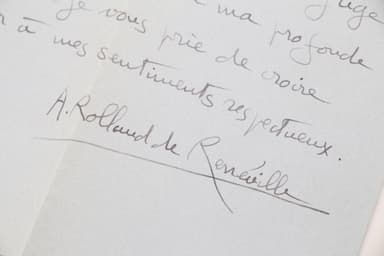 je vous prie de croire
à ma profonde
à mes sentiments respectueux.
A. Rolland de Renéville